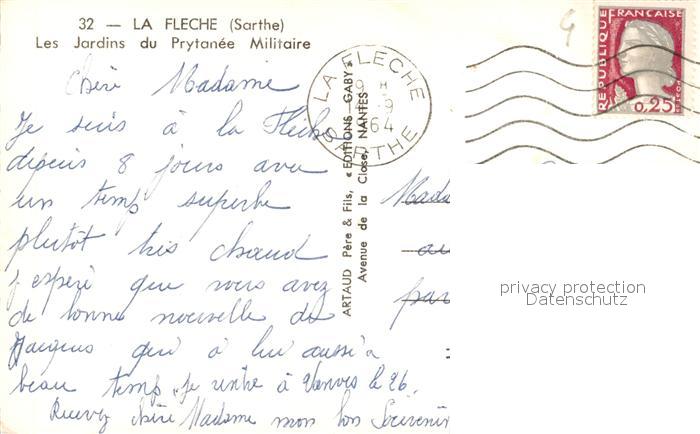 32 — LA FLECHE (Sarthe)
Les Jardins du Prytanée Militaire
Chère Madame
Je suis à la Flèche
depuis 8 jours avec
un temps superbe
plutôt très chaud
j'espère que vous avez
de bonne nouvelle de
qui à lui aussi a
beau temp. je rentre à Vanves le 26.
Recevez chère Madame mon bon Souvenir
LA FLECHE
9 H
9
64
SARTHE
ARTAUD Père & Fils, « EDITIONS GABY »
Avenue de la Close, NANTES
REPUBLIQUE FRANÇAISE
0,25
Mada
au
par
privacy protection
Datenschutz